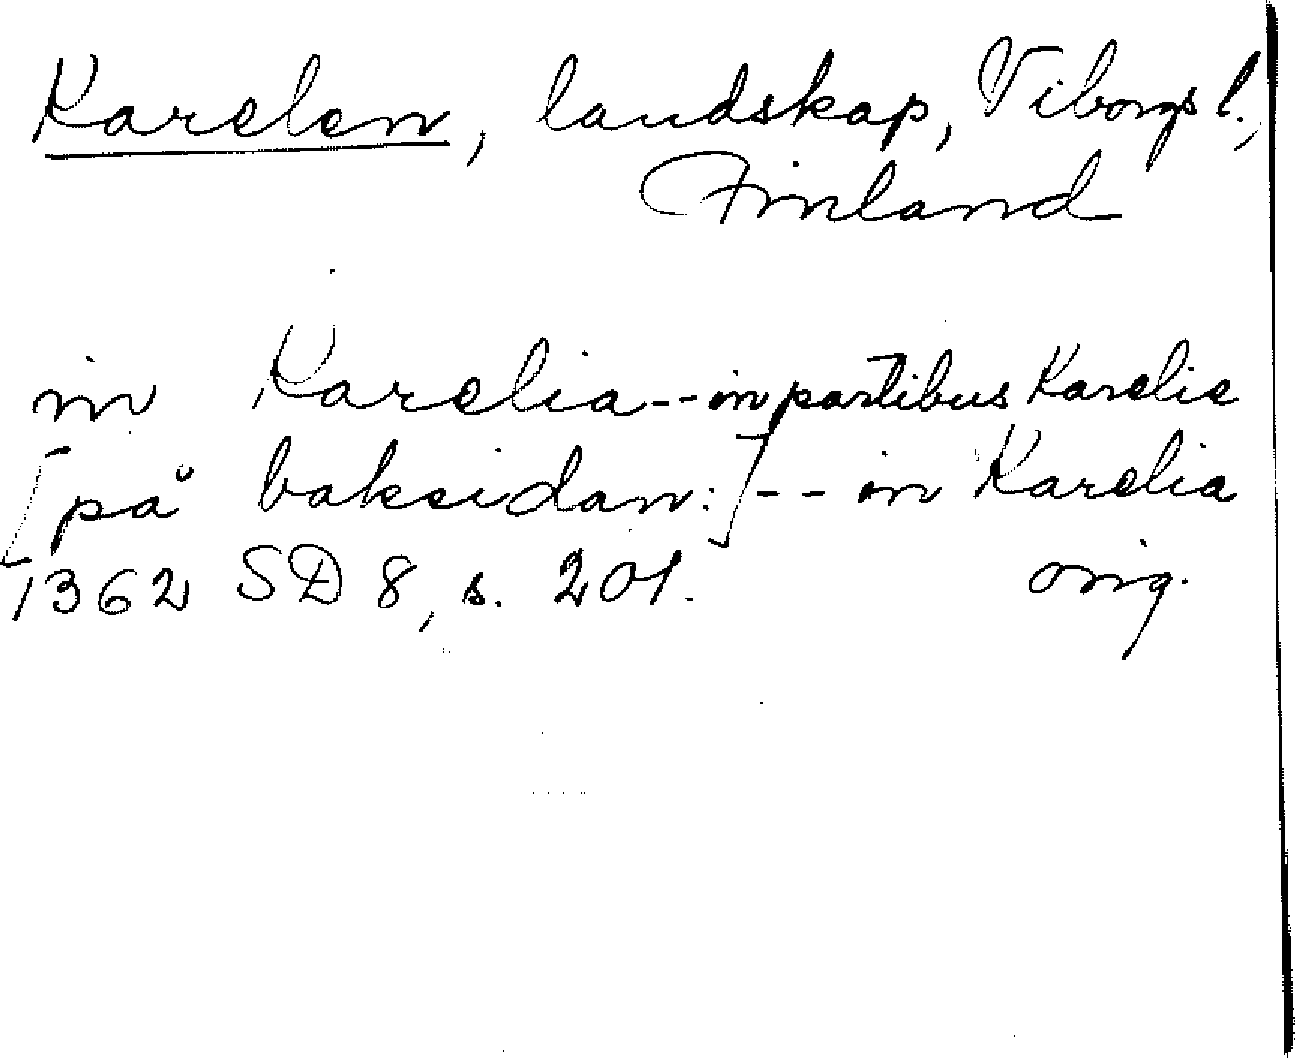 Karelen, landskap, Viborgs l.,
Finland
in Karelia -- in partibus Karelie
[på baksidan:] -- in Karelia
1362 SD 8, s. 201. orig.